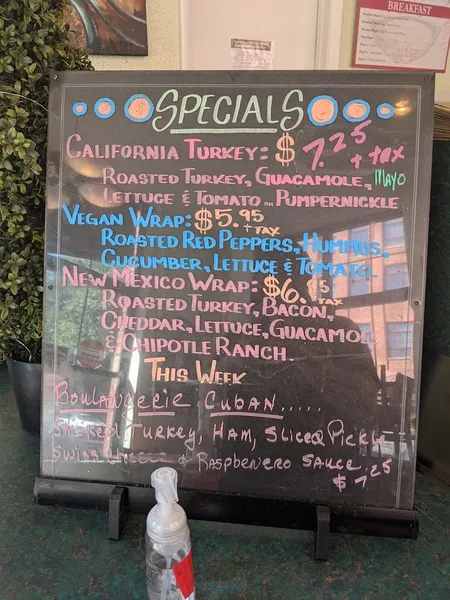 BREAKFAST
SPECIALS
CALIFORNIA TURKEY: $7.25 + tax
ROASTED TURKEY, GUACAMOLE, MAYO
LETTUCE & TOMATO on PUMPERNICKLE
VEGAN WRAP: $5.95 + TAX
ROASTED RED PEPPERS, HUMMUS,
CUCUMBER, LETTUCE & TOMATO.
NEW MEXICO WRAP: $6.95 TAX
ROASTED TURKEY, BACON,
CHEDDAR, LETTUCE, GUACAMOLE
& CHIPOTLE RANCH.
THIS WEEK
BOULANGERIE CUBAN.....
SMOKED TURKEY, HAM, SLICED PICKLE
SWISS CHEESE & RASPBENERO SAUCE
$7.25